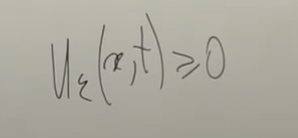 u_ε(x,t) ≥ 0